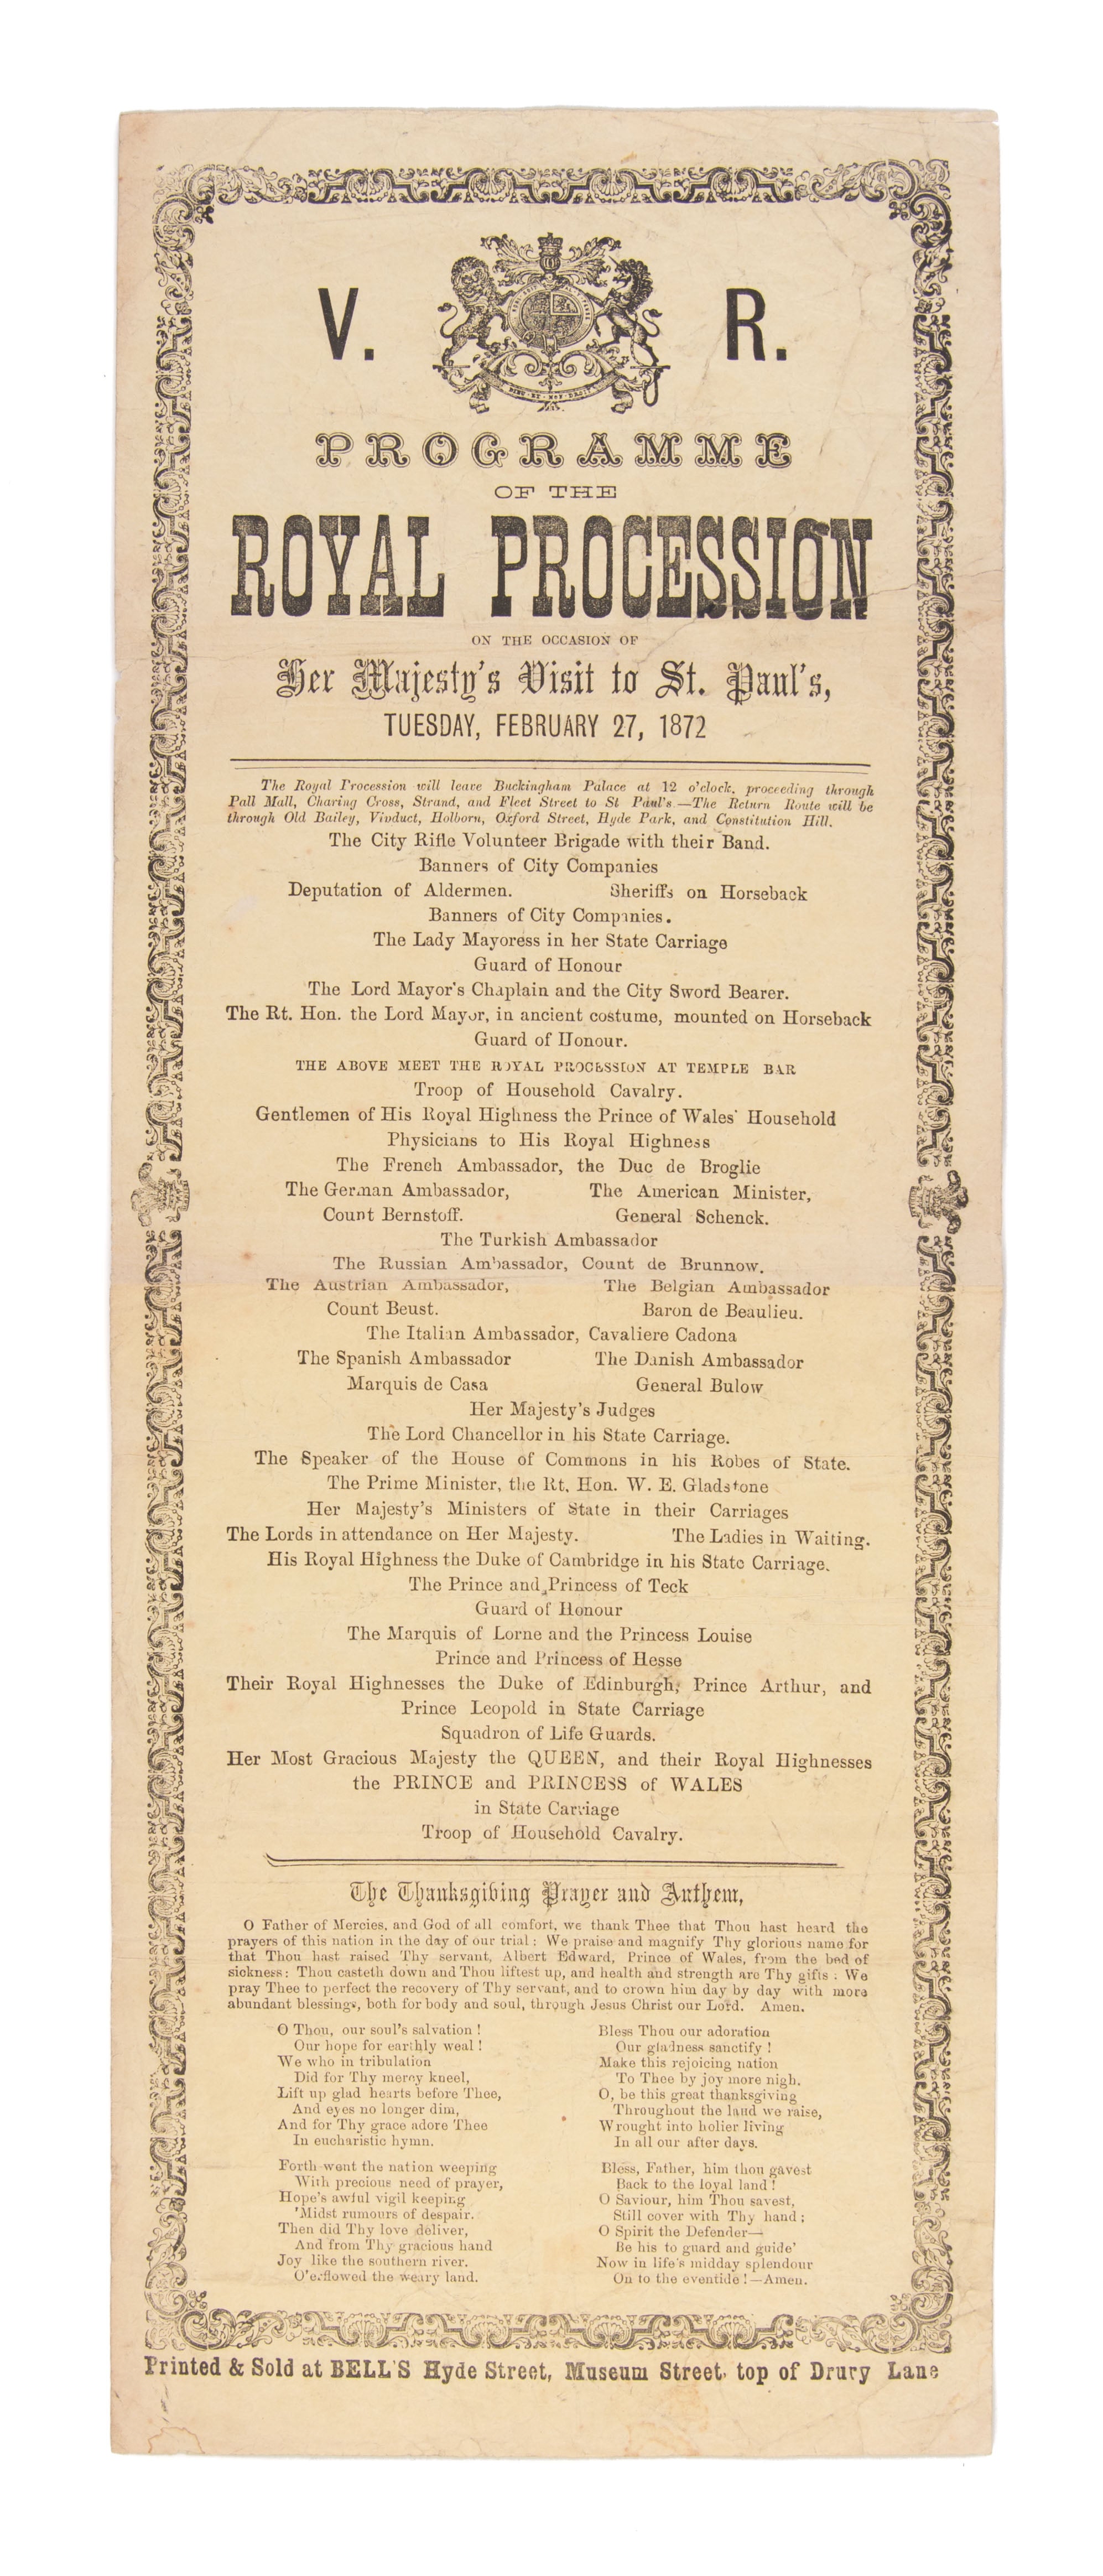 V. R.
DIEU ET MON DROIT
PROGRAMME
OF THE
ROYAL PROCESSION
ON THE OCCASION OF
Her Majesty's Visit to St. Paul's,
TUESDAY, FEBRUARY 27, 1872
The Royal Procession will leave Buckingham Palace at 12 o'clock, proceeding through
Pall Mall, Charing Cross, Strand, and Fleet Street to St Paul's.—The Return Route will be
through Old Bailey, Viaduct, Holborn, Oxford Street, Hyde Park, and Constitution Hill.
The City Rifle Volunteer Brigade with their Band.
Banners of City Companies
Deputation of Aldermen. Sheriffs on Horseback
Banners of City Companies.
The Lady Mayoress in her State Carriage
Guard of Honour
The Lord Mayor's Chaplain and the City Sword Bearer.
The Rt. Hon. the Lord Mayor, in ancient costume, mounted on Horseback
Guard of Honour.
THE ABOVE MEET THE ROYAL PROCESSION AT TEMPLE BAR
Troop of Household Cavalry.
Gentlemen of His Royal Highness the Prince of Wales' Household
Physicians to His Royal Highness
The French Ambassador, the Duc de Broglie
The German Ambassador, The American Minister,
Count Bernstoff. General Schenck.
The Turkish Ambassador
The Russian Ambassador, Count de Brunnow.
The Austrian Ambassador, The Belgian Ambassador
Count Beust. Baron de Beaulieu.
The Italian Ambassador, Cavaliere Cadona
The Spanish Ambassador The Danish Ambassador
Marquis de Casa General Bulow
Her Majesty's Judges
The Lord Chancellor in his State Carriage.
The Speaker of the House of Commons in his Robes of State.
The Prime Minister, the Rt. Hon. W. E. Gladstone
Her Majesty's Ministers of State in their Carriages
The Lords in attendance on Her Majesty. The Ladies in Waiting.
His Royal Highness the Duke of Cambridge in his State Carriage.
The Prince and Princess of Teck
Guard of Honour
The Marquis of Lorne and the Princess Louise
Prince and Princess of Hesse
Their Royal Highnesses the Duke of Edinburgh, Prince Arthur, and
Prince Leopold in State Carriage
Squadron of Life Guards.
Her Most Gracious Majesty the QUEEN, and their Royal Highnesses
the PRINCE and PRINCESS of WALES
in State Carriage
Troop of Household Cavalry.
The Thanksgiving Prayer and Anthem,
O Father of Mercies, and God of all comfort, we thank Thee that Thou hast heard the
prayers of this nation in the day of our trial: We praise and magnify Thy glorious name for
that Thou hast raised Thy servant, Albert Edward, Prince of Wales, from the bed of
sickness: Thou casteth down and Thou liftest up, and health and strength are Thy gifts: We
pray Thee to perfect the recovery of Thy servant, and to crown him day by day with more
abundant blessings, both for body and soul, through Jesus Christ our Lord. Amen.
O Thou, our soul's salvation!
Our hope for earthly weal!
We who in tribulation
Did for Thy mercy kneel,
Lift up glad hearts before Thee,
And eyes no longer dim,
And for Thy grace adore Thee
In eucharistic hymn.
Forth went the nation weeping
With precious need of prayer,
Hope's awful vigil keeping
'Midst rumours of despair.
Then did Thy love deliver,
And from Thy gracious hand
Joy like the southern river.
O'erflowed the weary land.
Bless Thou our adoration
Our gladness sanctify!
Make this rejoicing nation
To Thee by joy more nigh.
O, be this great thanksgiving
Throughout the land we raise,
Wrought into holier living
In all our after days.
Bless, Father, him thou gavest
Back to the loyal land!
O Saviour, him Thou savest,
Still cover with Thy hand;
O Spirit the Defender—
Be his to guard and guide'
Now in life's midday splendour
On to the eventide!—Amen.
Printed & Sold at BELL'S Hyde Street, Museum Street, top of Drury Lane